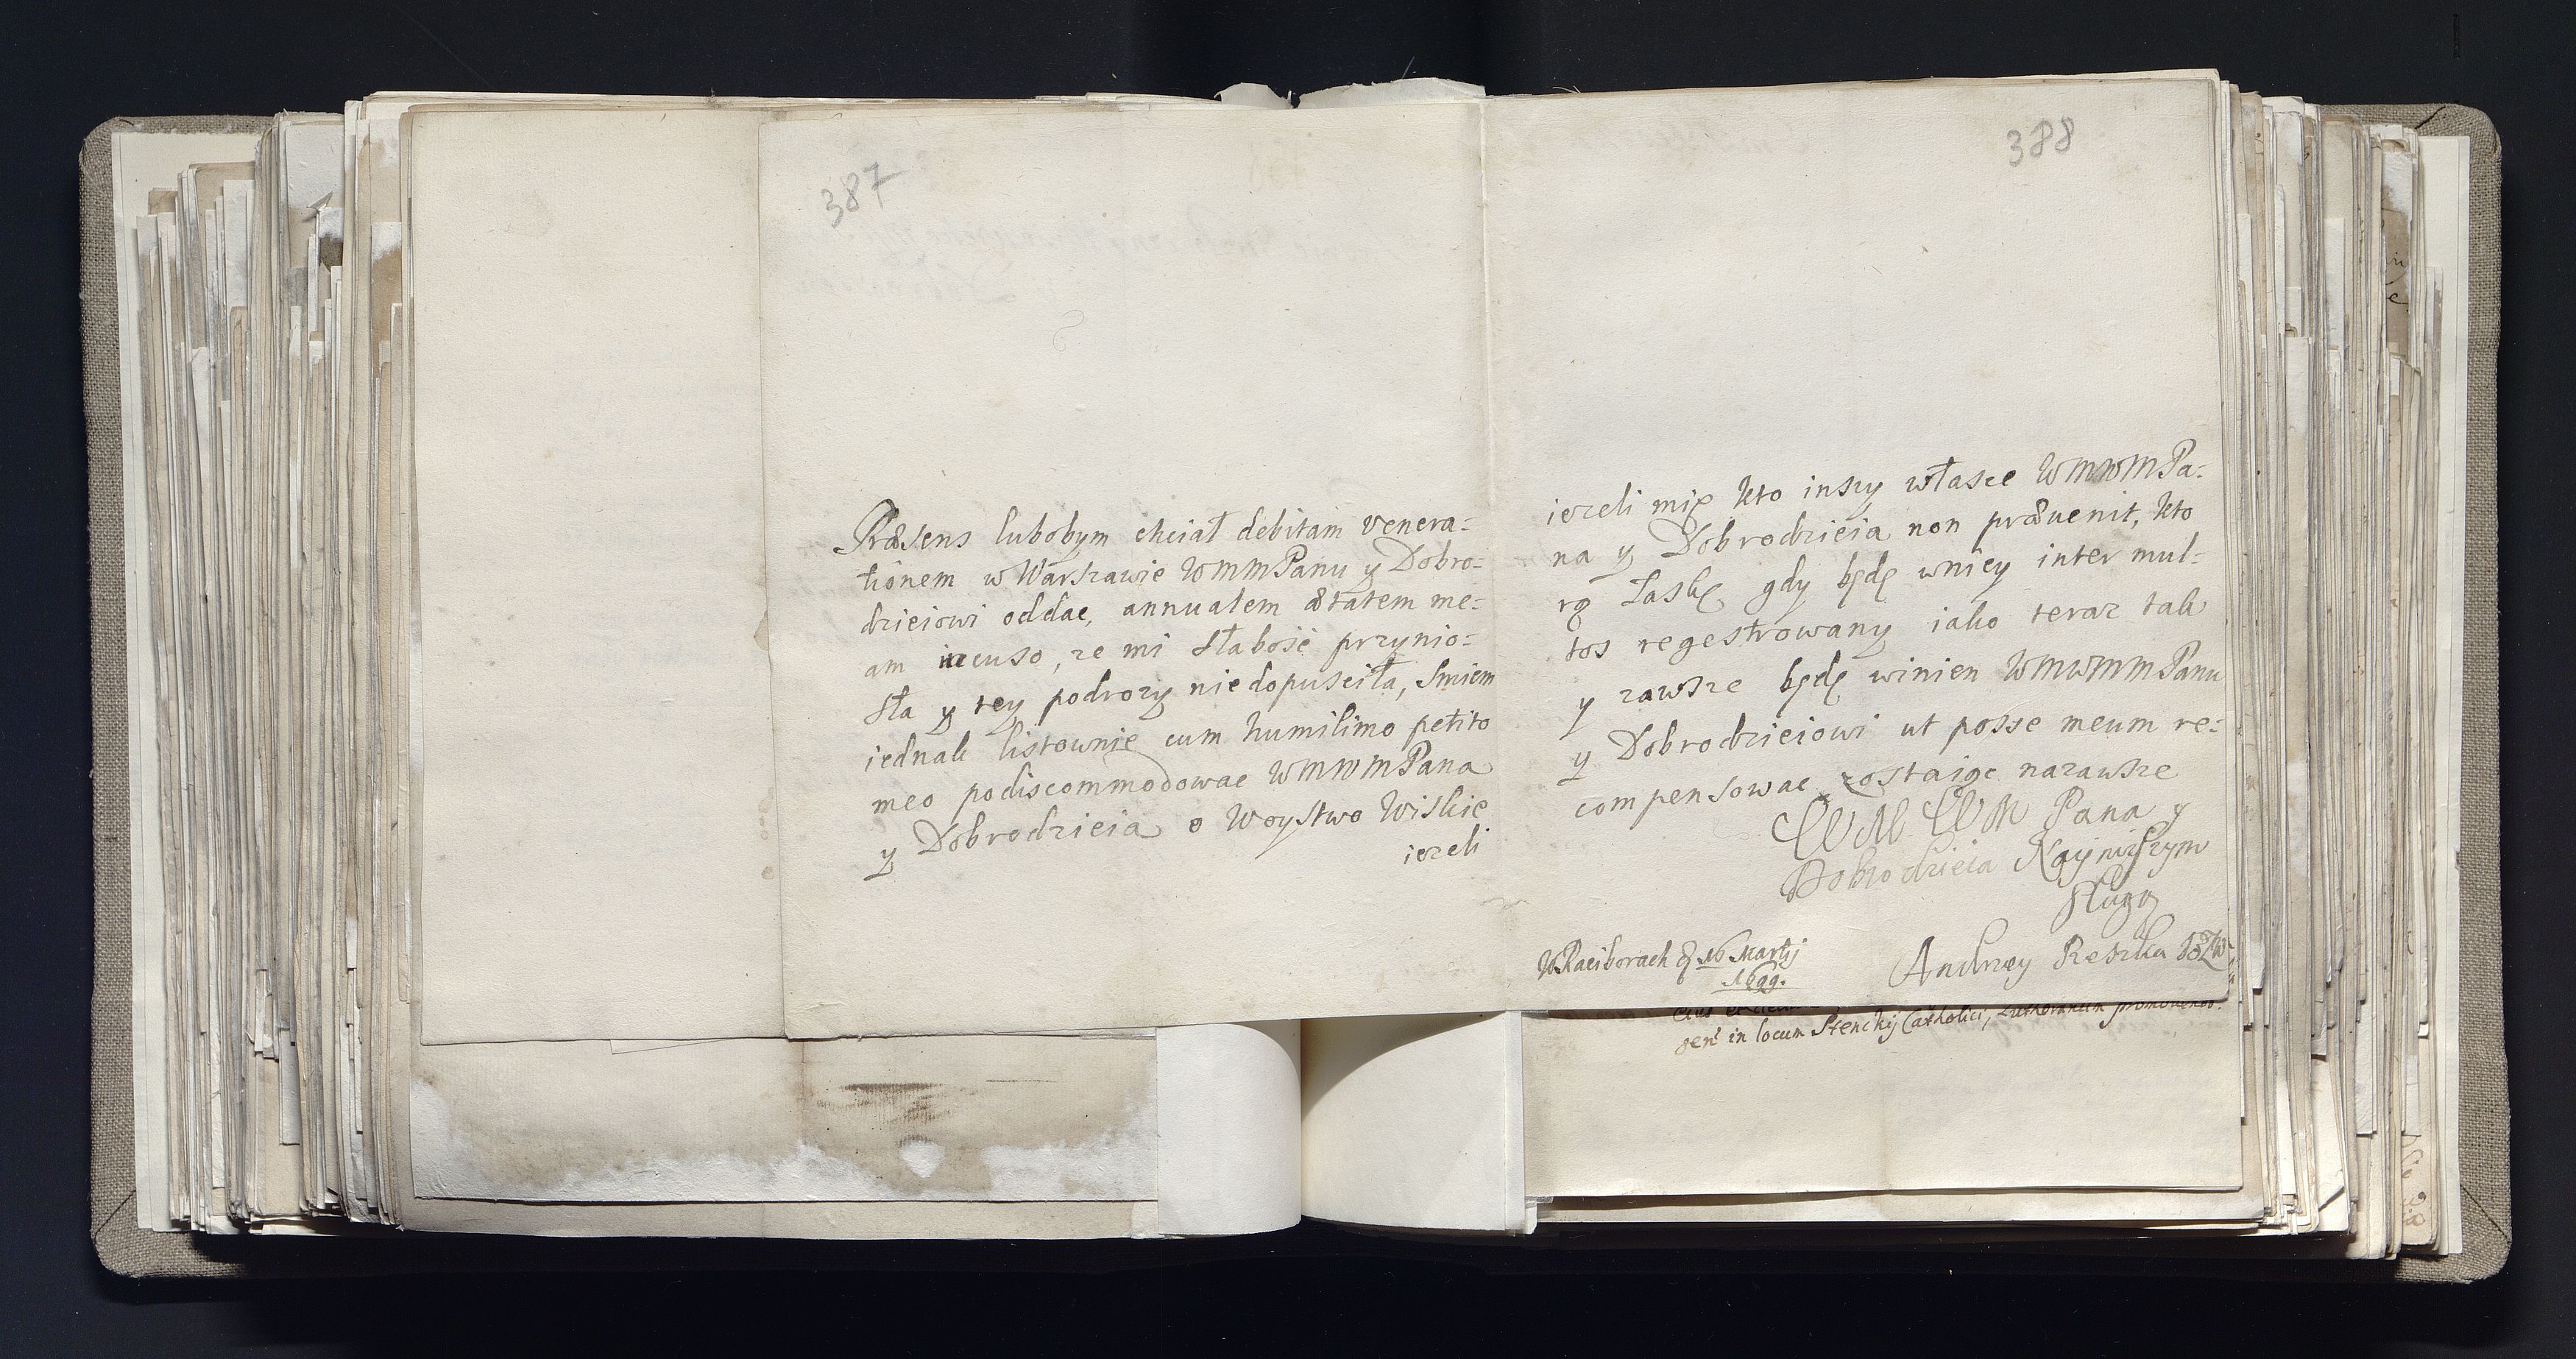 387
Præsens lubobym chciał debitam venera=
tionem w Warszawie WMMPanu y Dobro=
dzieiowi oddac, annualem ætatem me=
am incuso, ze mi słabość przynio=
sła y tey podrozy niedopusciła, smiem
iednak listownie cum humilimo petito
meo podiscommodowac WMWMPana
y Dobrodzieia o Woystwo Wiskie
iezeli
388
iezeli mię kto inszy własce WMWMPa=
na y Dobrodzieia non prævenit, kto
rą Łaskę gdy będę wniey inter mul=
tos regestrowany iako teraz tak
y zawsze będę winien WMWMMPanu
y Dobrodzieiowi ut posse meum re=
compensowac zostaiąc nazawsze
WM WM Pana y
Dobrodzieia Nayniższym
sługą
WRaciborach d 16 Martij
1699.
Andrzey Reszka
in locum Stenckij Catholici, Lutheranum promovendo.